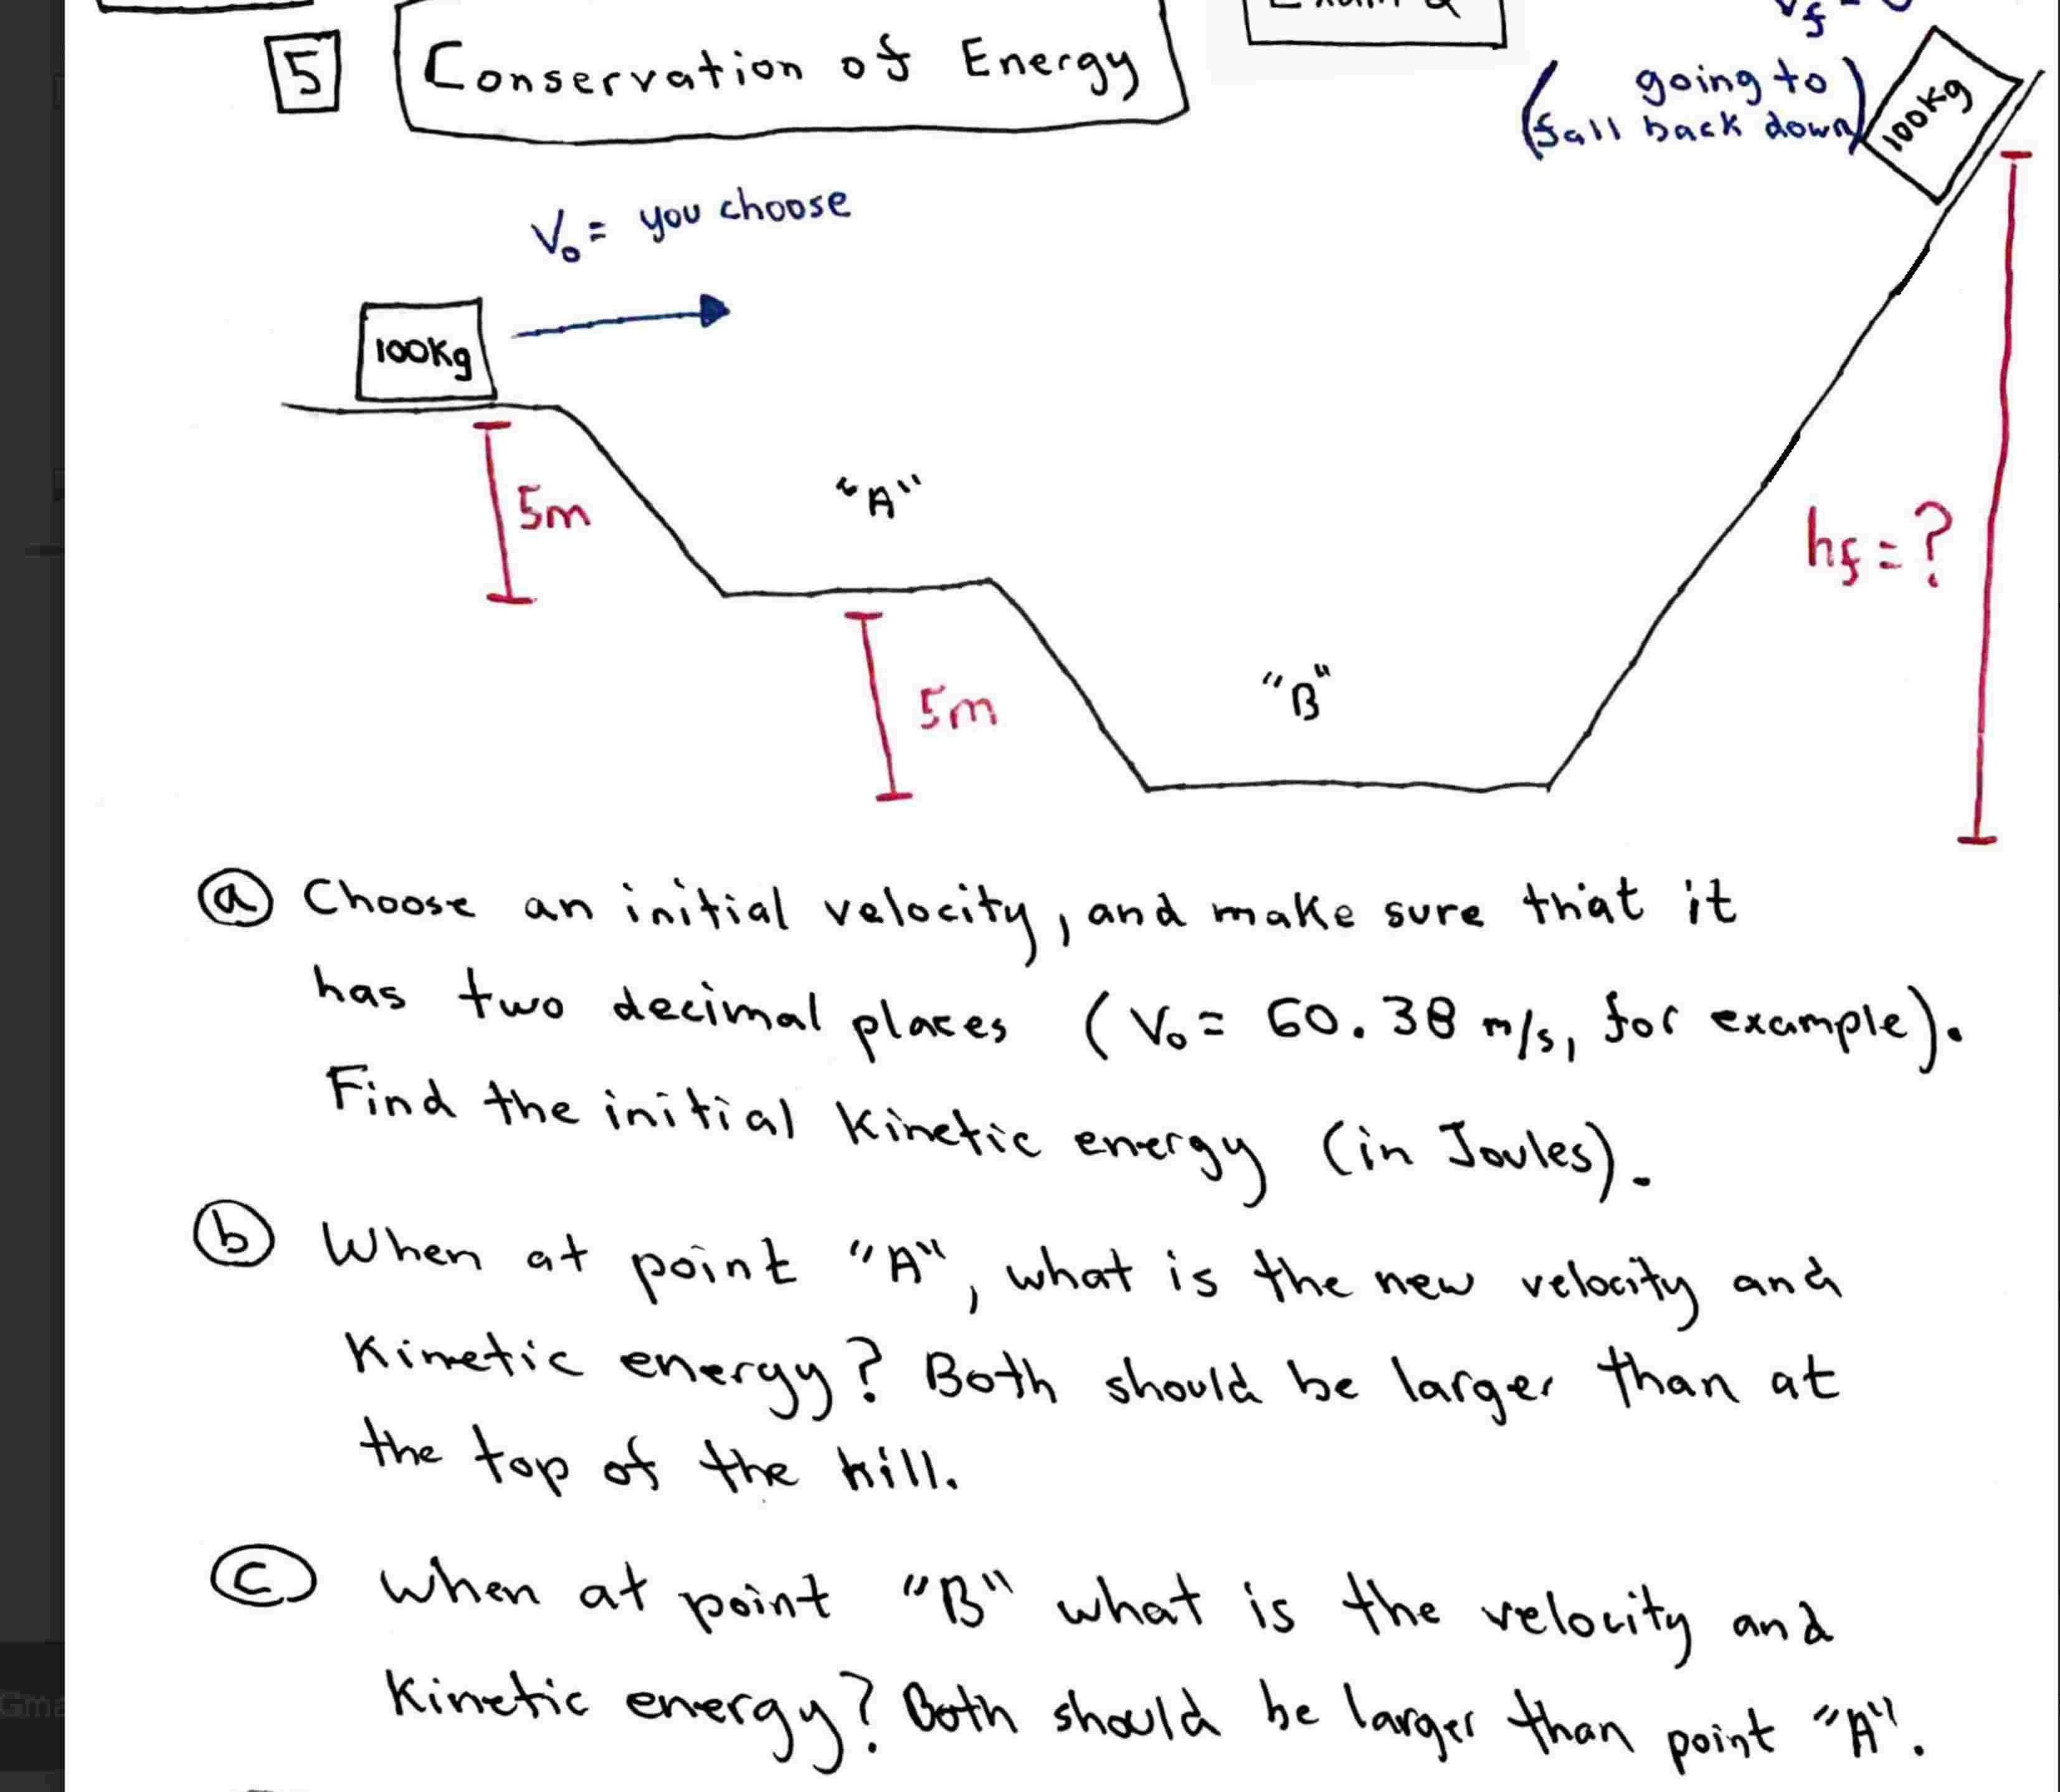 5 Conservation of Energy
(going to
fall back down)
100kg
V₀ = you choose
100kg
5m
"A"
hf = ?
5m
"B"
(a) Choose an initial velocity, and make sure that it
has two decimal places (V₀ = 60.38 m/s, for example).
Find the initial kinetic energy (in Joules).
(b) When at point "A", what is the new velocity and
kinetic energy? Both should be larger than at
the top of the hill.
(c) When at point "B" what is the velocity and
kinetic energy? Both should be larger than point "A".